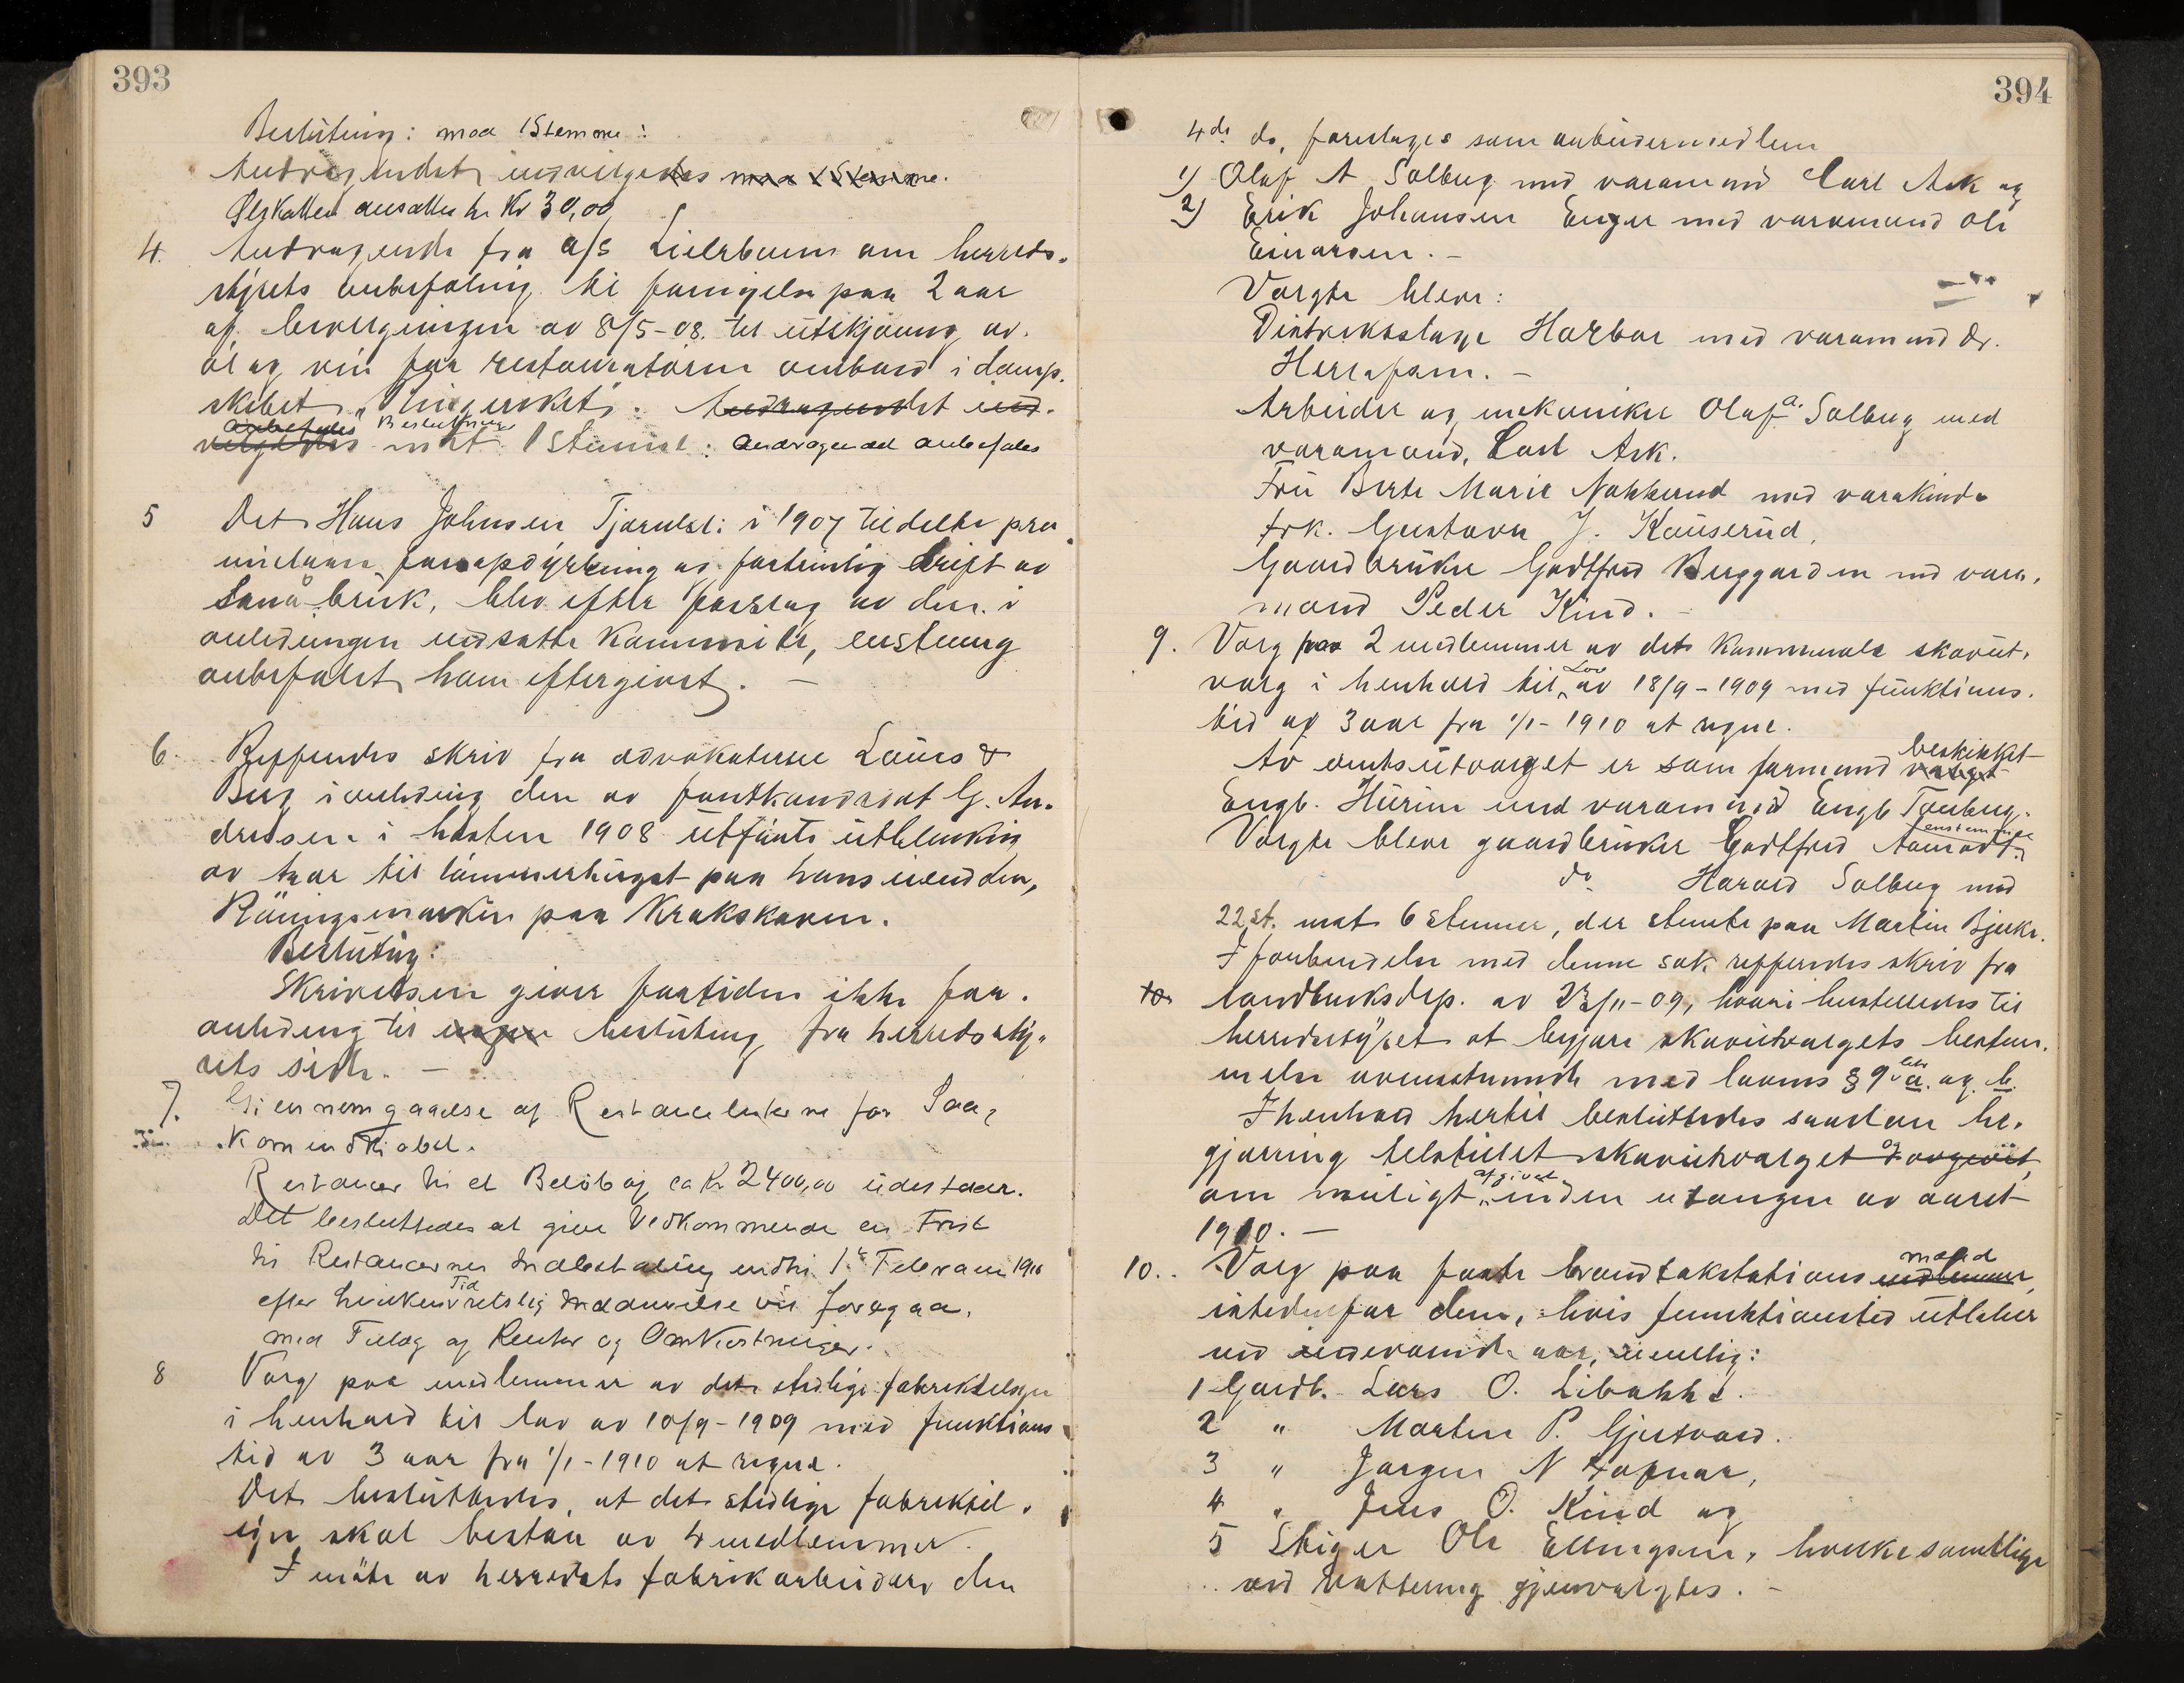 393
Beslutning: mod 1 Stemme:
Andragendet indvilgedes mod 1 Stemme.
Ølskatten ansattes til Kr 30,00
4. Andragende fra a/s Lierbanen om herreds-
styrets anbefaling til fornyelse paa 2 aar
af bevilgningen av 8/5-08. til utskjænkning av
øl og vin for restauratøren ombord i damp-
skibet "Ringerike". Andragendet ind-
anbefales Beslutning
vilgedes mot 1 stemme: Andragendet anbefales
5 Det Hans Johnsen i 1907 tildelte præ-
mielaan for opdyrkning og fortrinlig drift av
bruk, blev efter forslag av den i
anledningen nedsatte komite, enstemmig
anbefalet ham eftergivet. –
6. Refferertes skriv fra advokaterne &
Berg i anledning den av forstkandidat G. An-
dresen i høsten 1908 utførte utblinkning
av trær til tømmerhugst paa hans eiendom,
paa Krokskoven.
Beslutning:
Skrivelsen giver fortiden ikke for-
anledning til ingen beslutning fra herredssty-
rets side. –
7. Giennemgaaelse af Restancelisterne for Saa-
kornindkiøbet.
Restancer til et Beløb af ca Kr 2400,00 udestaar.
Det besluttedes at give Vedkommende en Frist
til Restancernes Indbetaling indtil 1ste Februar 1910
efter hvilken Tid retslig Inddrivelse vil foregaa,
med Tillæg af Renter og Omkostninger.
8 Valg paa medlemmer av det stedlige fabriktilsyn
i henhold til lov av 10/9-1909 med funktions-
tid av 3 aar fra 1/1-1910 at regne.
Det besluttedes, at det stedlige fabriktil-
syn skal bestaa av 4 medlemmer.
I møte av herredets fabrikarbeidere den
394
4de ds. foreslages som arbeidermedlem
1) Olaf A Solberg med varamand Carl Ask og
2) Erik Johansen Enger med varamand Ole
Einarsen. –
Valgte bleve:
Distriktslæge Harboe med varamand Dr.
–
Arbeider og mekaniker Olaf A. Solberg med
varamand, Carl Ask.
Fru Berte Marie Nakkerud med varakvinde
frk. Gustava J. Kauserud,
Gaardbruker Godtfred Berggarden med vara-
mand Peder Kind.
9. Valg paa 2 medlemmer av det kommunale skogut-
valg i henhold til Lov av 18/9-1909 med funktions-
tid af 3 aar fra 1/1-1910 at regne.
Av amtsutvalget er som formand beskikket valget
Engb. med varamand Engb.
Valgte bleve gaardbruker Godtfred enstemmig
do Harald Solberg med
22 st. mot 6 stemmer, der stemte paa Martin Bjerke.
I forbindelse med denne sak refferertes skriv fra
landbruksdep. av 23/11-09, hvori henstilledes til
herredsstyret at begjære skogutvalgets bestem-
melse overensstemmende med lovens § 9 a. og b.
I henhold hertil besluttedes saadan be-
gjæring tilstillet skogutvalget og avgivet
om muligt afgivet inden utgangen av aaret
1910. –
10. Valg paa faste brandtakstations mænd medlemmer,
istedenfor dem, hvis funktionstid utløber
ved indeværende aar, nemlig:
1 Gardb. Lars O. Libakke.
2 " Martin P. Gjertvard.
3 " Jørgen N
4 " Jens O. Kind og
5 Stiger Ole Ellingsen, hvilke samtlige
ved votering gjenvalgtes. –